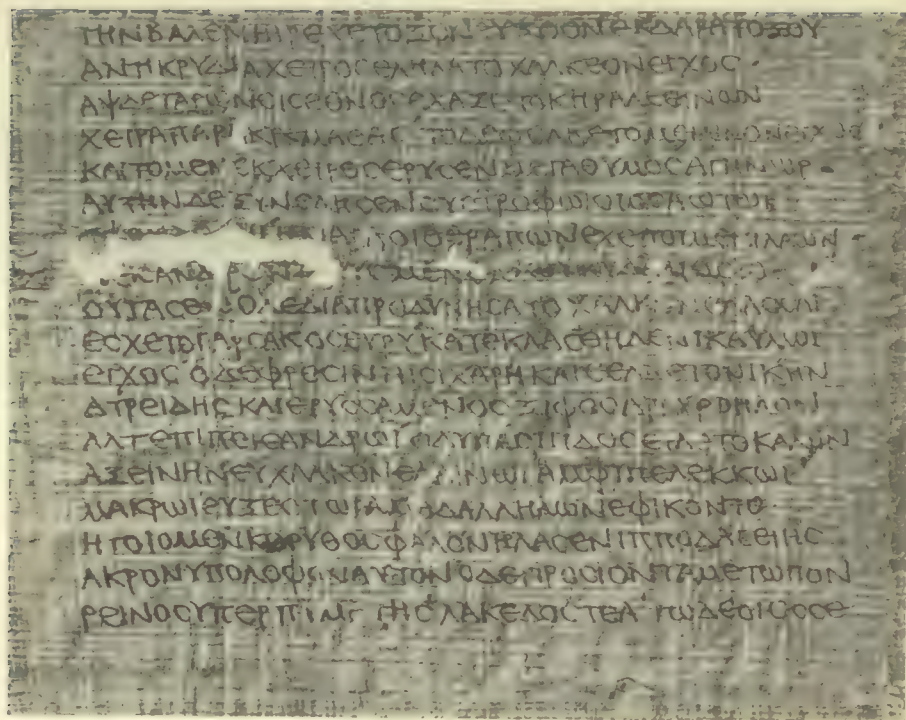 ΤΗΝΒΑΛΕΝΗΙΡΕΧΕΤΟΞΟΝΕΥΞΟΟΝΕΝΔΑΡΑΤΟΞΟΥ
ΑΝΤΙΚΡΥΔΙΑΧΕΙΡΟCΕΛΗΛΑΤΟΧΑΛΚΕΟΝΕΓΧΟC
ΑΨΔΕΤΑΡΩΝΟΙCΕΘΝΟCΕΧΑΖΕΤΟΚΗΡΑΛΕΕΙΝΩΝ
ΧΕΙΡΑΠΑΡΙΚΡΕΜΑCΑCΤΟΔΕΦΕΛΚΕΤΟΜΕΙΛΙΝΟΝΕΓΧΟC
ΚΑΙΤΟΜΕΝΕΚΧΕΙΡΟCΕΡΥCΕΝΜΕΓΑΘΥΜΟCΑΓΗΝΩΡ
ΑΥΤΗΝΔΕΞΥΝΕΔΗCΕΝΕΥCΤΡΟΦΩΙΟΙΟCΑΩΤΩΙ
ΟΙΘΕΡΑΠΩΝΕΧΕΠΟΙΜΕΝΙΛΑΩΝ
CΑΝΔ ΜΕΝ
ΟΥΤΑCΕΟΥΔΕΔΙΑΠΡΟΔΥΝΗCΑΤΟΧΑΛΚΟΝΕΛΑCCΑΙ
ΕCΧΕΤΟΓΑΡCΑΚΟCΕΥΡΥΚΑΤΕΚΛΑCΘΗΔΕΝΙΚΑΥΛΩΙ
ΕΓΧΟCΟΔΕΦΡΕCΙΝΗΙCΙΧΑΡΗΚΑΙΕΕΛΠΕΤΟΝΙΚΗΝ
ΑΤΡΕΙΔΗCΚΑΙΕΡΥCCΑΜΕΝΟCΞΙΦΟCΑΡΓΥΡΟΗΛΟΝ
ΑΛΤΕΠΙΠΕΙCΑΝΔΡΩΙΟΔΥΠΑCΠΙΔΟCΕΙΛΕΤΟΚΑΛΗΝ
ΑΞΕΙΝΗΝΕΥΧΑΛΚΟΝΕΛΑΙΝΩΙΑΜΦΙΠΕΛΕΚΚΩΙ
ΜΑΚΡΩΙΕΥΞΕCΤΩΙΑΜΑΔΑΛΛΗΛΩΝΕΦΙΚΟΝΤΟ
ΗΤΟΙΟΜΕΝΚΟΡΥΘΟCΦΑΛΟΝΗΛΑCΕΝΙΠΠΟΔΑCΕΙΗC
ΑΚΡΟΝΥΠΟΛΟΦΟΝΑΥΤΟΝΟΔΕΠΡΟCΙΟΝΤΑΜΕΤΩΠΟΝ
ΡΕΙΝΟCΥΠΕΡΠΥΜΑΤΗCΛΑΚΕΔΟCΤΕΑΤΩΔΕΟΙΟCCΕ